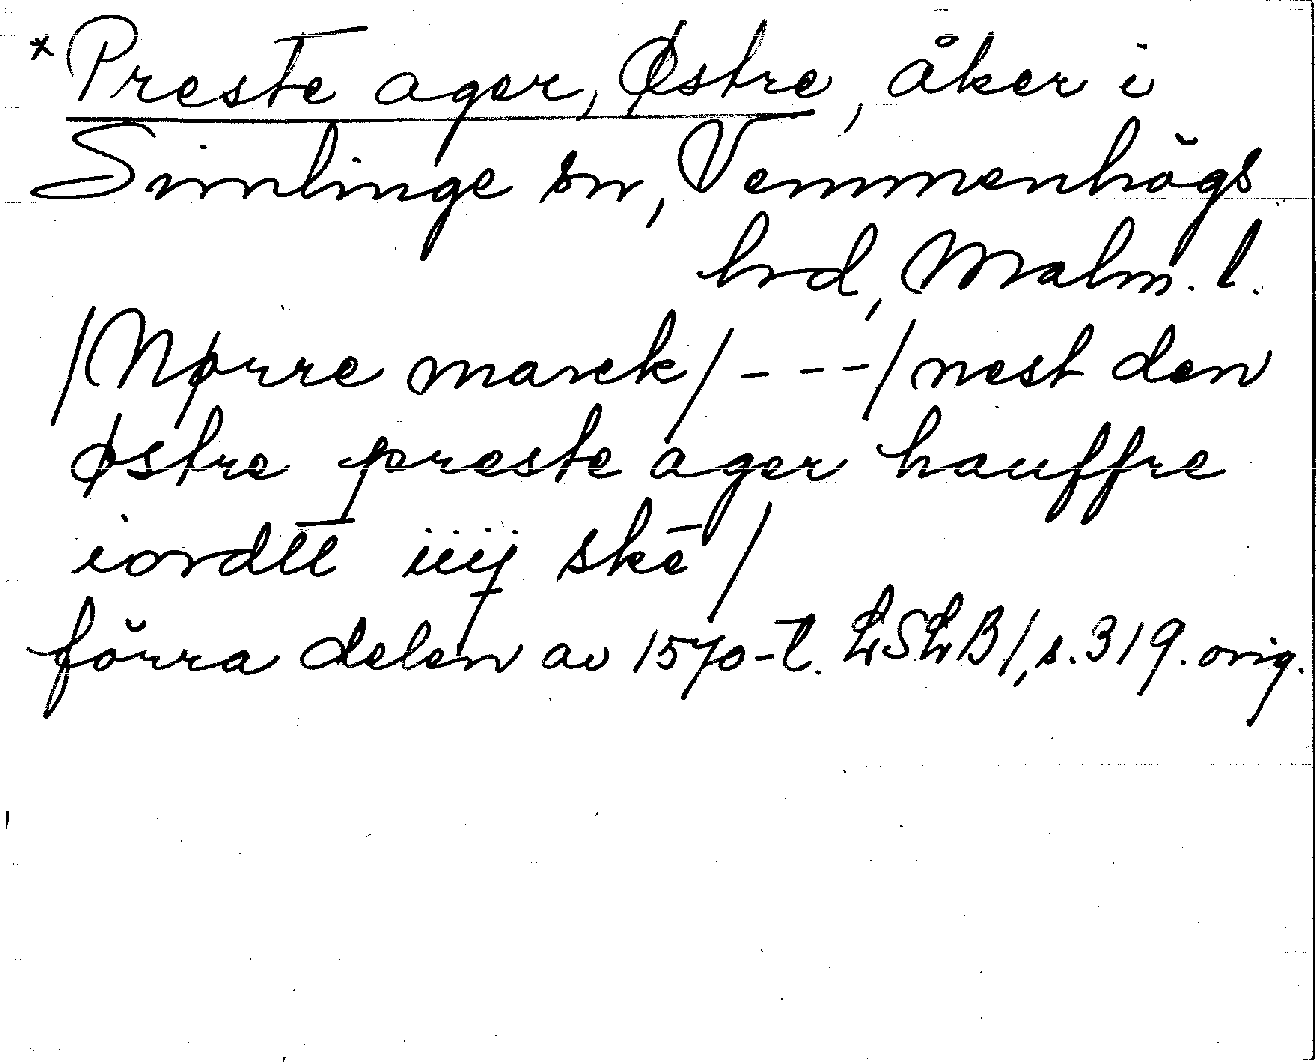 *Preste ager, Østre, åker i
Simlinge sn, Vemmenhögs
hrd, Malm. l.
/Nørre marck/ - - -/ nest den
østre preste ager hauffre
iordtt iiij skē /
förra delen av 1570-t. LSLB/, s. 319. orig.